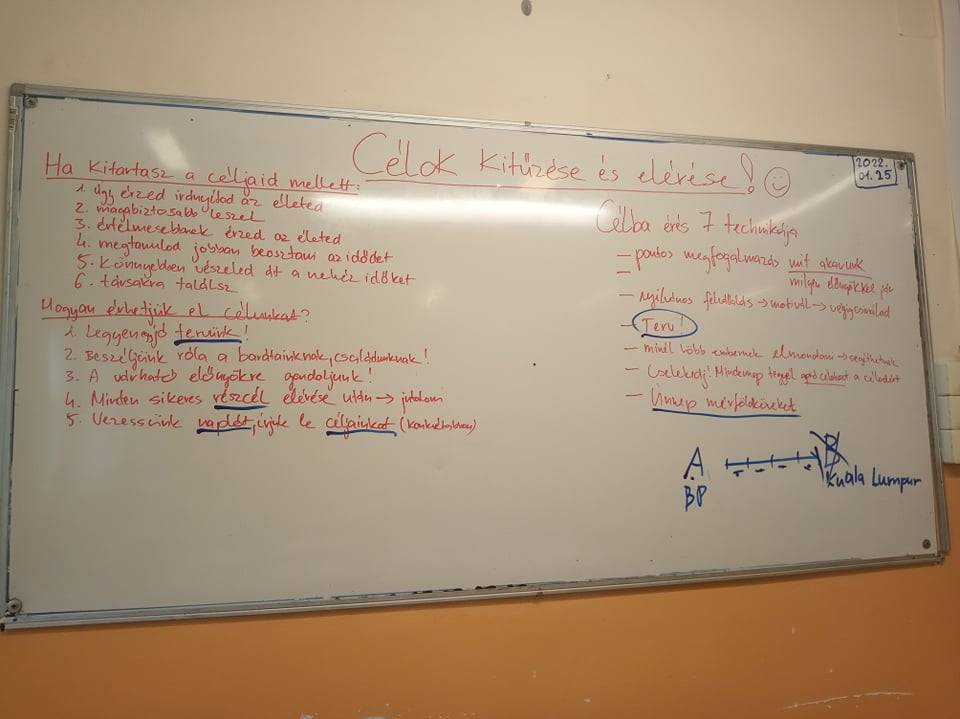 Célok kitűzése és elérése! ☺
2022.
01.25
Ha kitartasz a céljaid mellett:
1. úgy érzed irányítod az életed
2. magabiztosabb leszel
3. értelmesebbnek érzed az életed
4. megtanulod jobban beosztani az idődet
5. Könnyebben vészeled át a nehéz időket
6. társakra találsz
Hogyan érhetjük el célunkat?
1. Legyen jó tervünk!
2. Beszéljünk róla a barátainknak, családunknak!
3. A várható előnyökre gondoljunk!
4. Minden sikeres részcél elérése után → jutalom
5. Vezessünk naplót, írjuk le céljainkat
Célba érés 7 technikája
— pontos megfogalmazás mit akarunk
— milyen előnyökkel jár
— nyilvános felvállalás → motivál → végigcsinálod
— Terv!
— minél több embernek elmondani → segíthetnek
— Cselekedj! Mindennap tegyél a célodért
— Ünnep mérföldköveket
A B
BP Kuala Lumpur